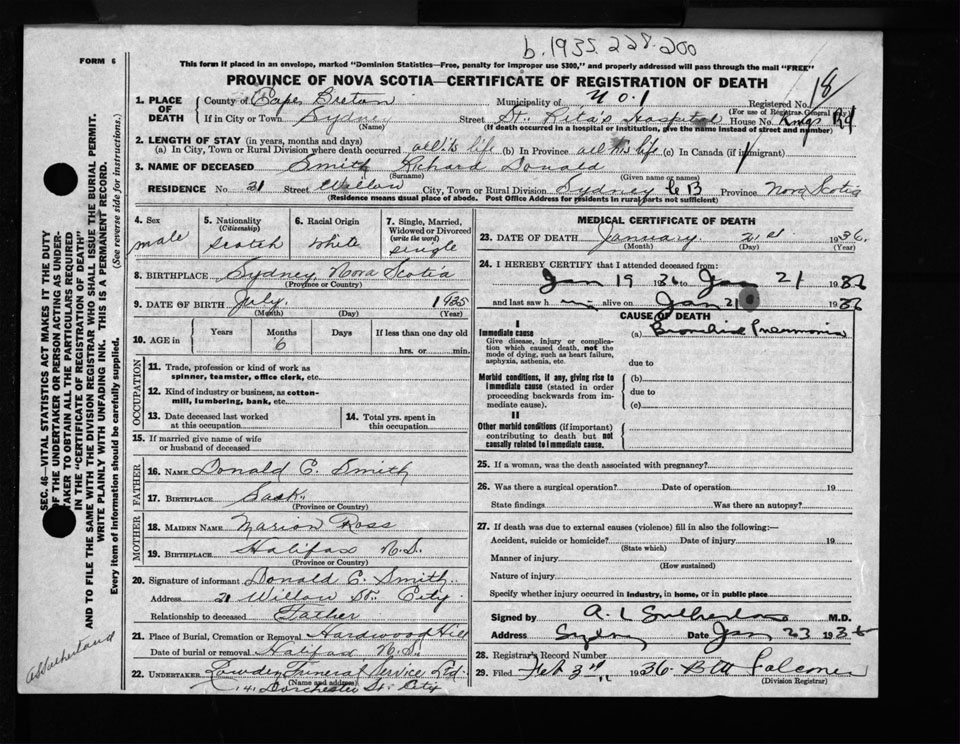 b. 1935. 228. 200
FORM 6
This form if placed in an envelope, marked "Dominion Statistics—Free, penalty for improper use $300," and properly addressed will pass through the mail "FREE"
PROVINCE OF NOVA SCOTIA—CERTIFICATE OF REGISTRATION OF DEATH
18
1. PLACE OF DEATH
County of Cape Breton Municipality of No. 1 Registered No.
(For use of Registrar General only)
If in City or Town Sydney Street St. Rita's Hospital House No. Kings Rd
(Name) (If death occurred in a hospital or institution, give the name instead of street and number)
2. LENGTH OF STAY (in years, months and days)
(a) In City, Town or Rural Division where death occurred all his life (b) In Province all his life (c) In Canada (if immigrant)
3. NAME OF DECEASED Smith Richard Donald
(Surname) (Given name or names)
RESIDENCE No. 21 Street Willow City, Town or Rural Division Sydney C B Province Nova Scotia
(Residence means usual place of abode. Post Office Address for residents in rural parts not sufficient)
4. Sex male
5. Nationality (Citizenship) Scotch
6. Racial Origin White
7. Single, Married, Widowed or Divorced (write the word) single
8. BIRTHPLACE Sydney, Nova Scotia
(Province or Country)
9. DATE OF BIRTH July. 1935
(Month) (Day) (Year)
10. AGE in Years Months Days If less than one day old
6 hrs. or min.
OCCUPATION
11. Trade, profession or kind of work as spinner, teamster, office clerk, etc.
12. Kind of industry or business, as cotton-mill, lumbering, bank, etc.
13. Date deceased last worked at this occupation
14. Total yrs. spent in this occupation
15. If married give name of wife or husband of deceased
FATHER
16. NAME Donald C. Smith
17. BIRTHPLACE Sask.
(Province or Country)
MOTHER
18. MAIDEN NAME Marion Ross
19. BIRTHPLACE Halifax N.S.
(Province or Country)
20. Signature of informant Donald C. Smith
Address 21 Willow St. City
Relationship to deceased Father
21. Place of Burial, Cremation or Removal Hardwood Hill
Date of burial or removal Halifax N.S.
22. UNDERTAKER Lowden Funeral Service Ltd.
(Name and address)
141 Dorchester St. City
MEDICAL CERTIFICATE OF DEATH
23. DATE OF DEATH January 21st 1936.
(Month) (Day) (Year)
24. I HEREBY CERTIFY that I attended deceased from:
Jan 19 1936 to Jan 21 1936
and last saw him alive on Jan 21 1936
CAUSE OF DEATH
I
Immediate cause (a) Bronchial Pneumonia
Give disease, injury or complication which caused death, not the mode of dying, such as heart failure, asphyxia, asthenia, etc.
due to
Morbid conditions, if any, giving rise to immediate cause (stated in order proceeding backwards from immediate cause).
(b)
due to
(c)
II
Other morbid conditions (if important) contributing to death but not causally related to immediate cause.
25. If a woman, was the death associated with pregnancy?
26. Was there a surgical operation? Date of operation 19
State findings Was there an autopsy?
27. If death was due to external causes (violence) fill in also the following:—
Accident, suicide or homicide? Date of injury 19
(State which)
Manner of injury
(How sustained)
Nature of injury
Specify whether injury occurred in industry, in home, or in public place
Signed by A. L Sutherland M.D.
Address Sydney Date Jan 23 1936
28. Registrar's Record Number
29. Filed Feb 3rd 1936 Falconer
(Division Registrar)
SEC. 46—VITAL STATISTICS ACT MAKES IT THE DUTY
OF THE UNDERTAKER OR PERSON ACTING AS UNDER-
TAKER TO OBTAIN ALL THE PARTICULARS REQUIRED
IN THE "CERTIFICATE OF REGISTRATION OF DEATH"
AND TO FILE THE SAME WITH THE DIVISION REGISTRAR WHO SHALL ISSUE THE BURIAL PERMIT.
WRITE PLAINLY WITH UNFADING INK. THIS IS A PERMANENT RECORD.
Every item of information should be carefully supplied. (See reverse side for instructions.)
Sutherland